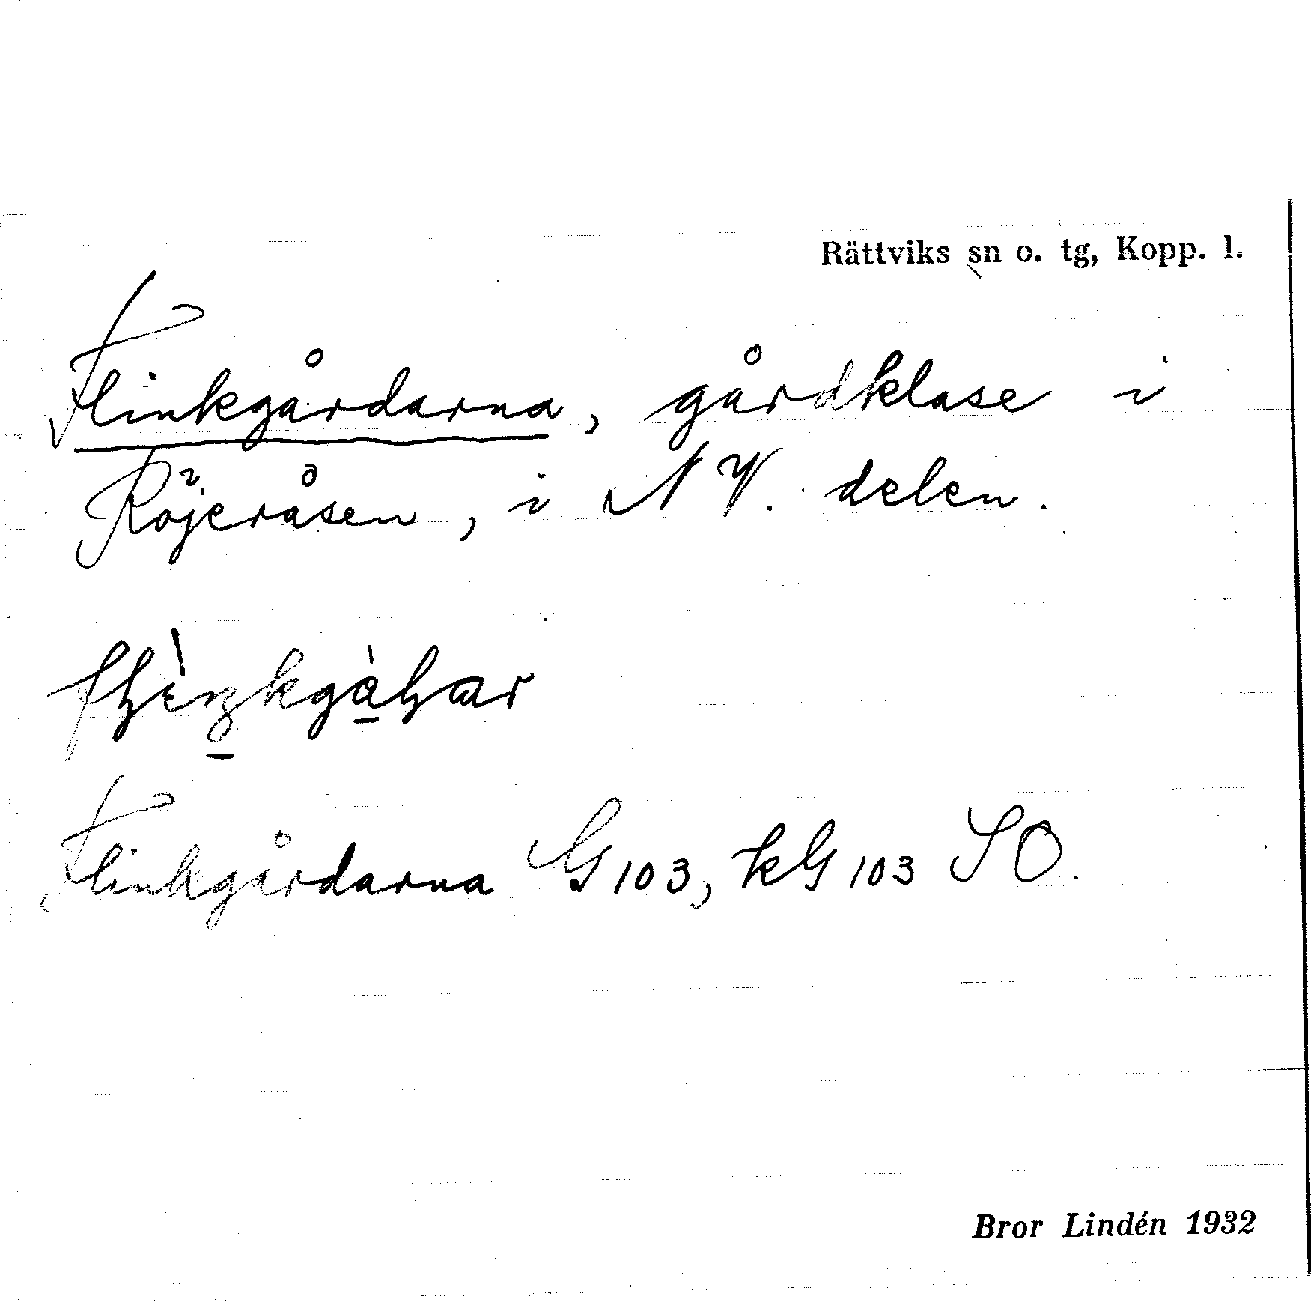 Rättviks sn o. tg, Kopp. l.
Flinkgårdarna, gårdklase i
Röjeråsen, i NV. delen.
Flinkgårdarna G103, kG103 SO.
Bror Lindén 1932